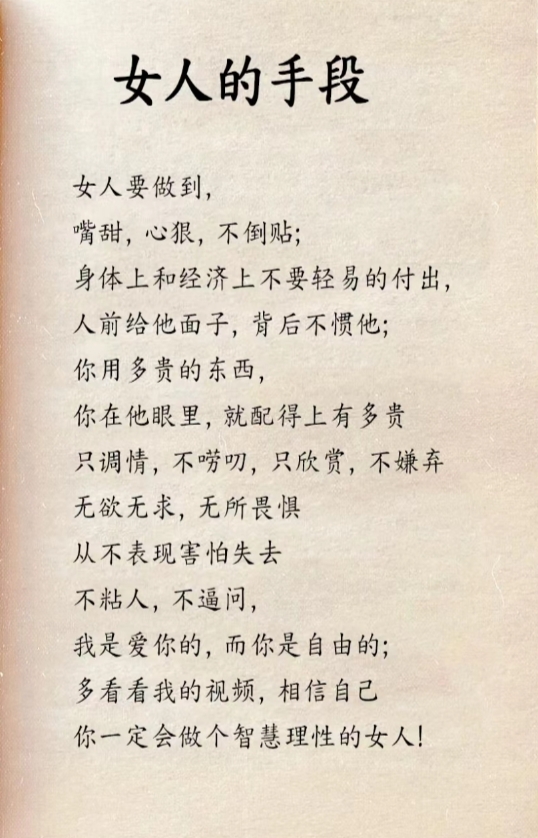 女人的手段
女人要做到，
嘴甜，心狠，不倒贴；
身体上和经济上不要轻易的付出，
人前给他面子，背后不惯他；
你用多贵的东西，
你在他眼里，就配得上有多贵
只调情，不唠叨，只欣赏，不嫌弃
无欲无求，无所畏惧
从不表现害怕失去
不粘人，不逼问，
我是爱你的，而你是自由的；
多看看我的视频，相信自己
你一定会做个智慧理性的女人！